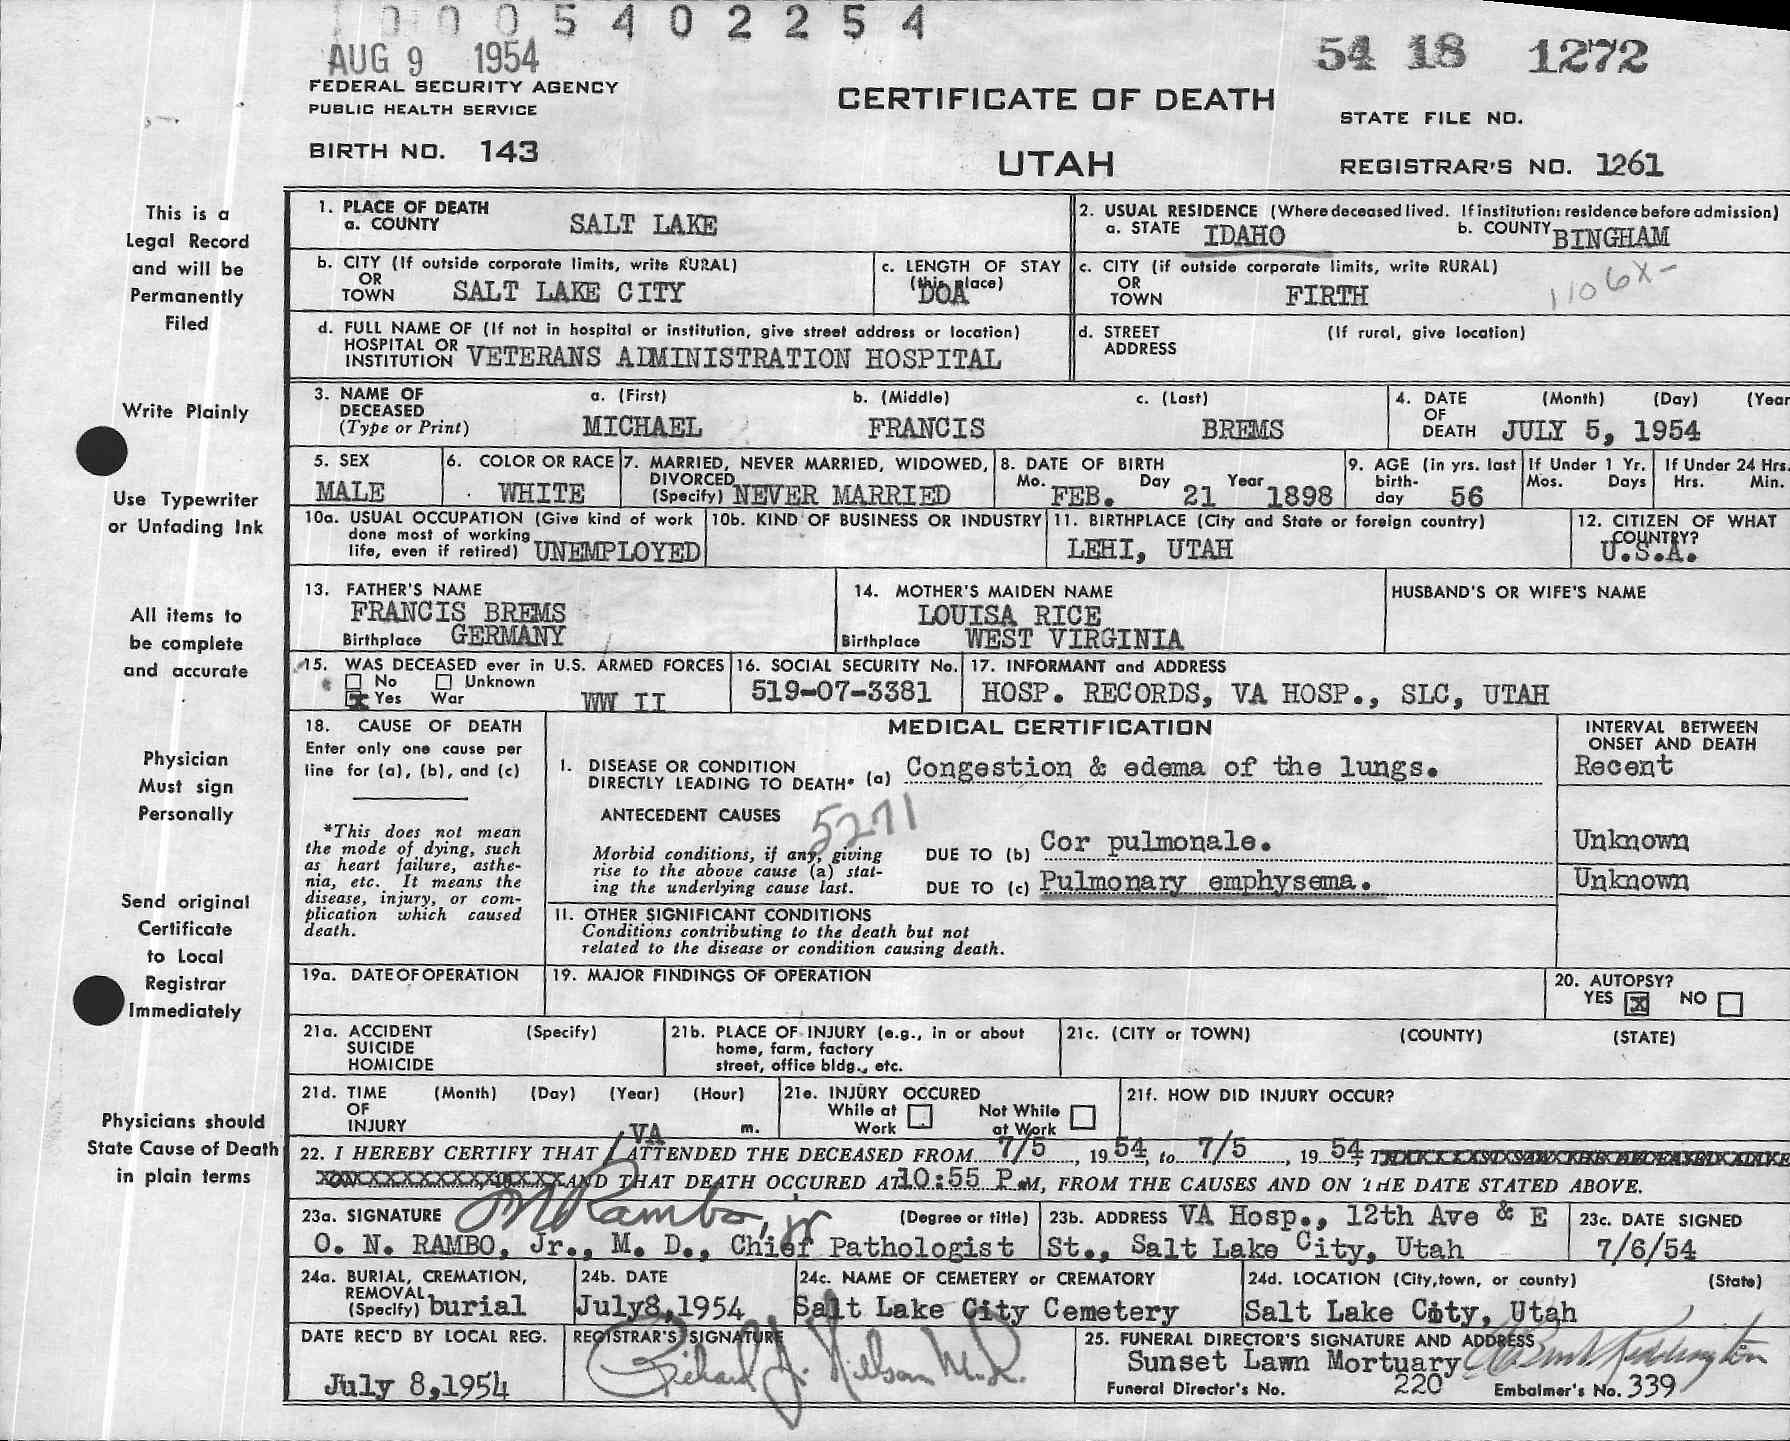 0 0 0 5 4 0 2 2 5 4
AUG 9 1954
54 18 1272
FEDERAL SECURITY AGENCY
PUBLIC HEALTH SERVICE
CERTIFICATE OF DEATH
STATE FILE NO.
BIRTH NO. 143
UTAH
REGISTRAR'S NO. 1261
This is a
Legal Record
and will be
Permanently
Filed
Write Plainly
Use Typewriter
or Unfading Ink
All items to
be complete
and accurate
Physician
Must sign
Personally
Send original
Certificate
to Local
Registrar
Immediately
Physicians should
State Cause of Death
in plain terms
1. PLACE OF DEATH
a. COUNTY SALT LAKE
2. USUAL RESIDENCE (Where deceased lived. If institution: residence before admission)
a. STATE IDAHO b. COUNTY BINGHAM
b. CITY (If outside corporate limits, write RURAL)
OR
TOWN SALT LAKE CITY
c. LENGTH OF STAY
(this place)
DOA
c. CITY (if outside corporate limits, write RURAL)
OR
TOWN FIRTH
1106X-
d. FULL NAME OF (If not in hospital or institution, give street address or location)
HOSPITAL OR
INSTITUTION VETERANS ADMINISTRATION HOSPITAL
d. STREET (If rural, give location)
ADDRESS
3. NAME OF a. (First) b. (Middle) c. (Last)
DECEASED
(Type or Print) MICHAEL FRANCIS BREMS
4. DATE (Month) (Day) (Year
OF
DEATH JULY 5, 1954
5. SEX
MALE
6. COLOR OR RACE
WHITE
7. MARRIED, NEVER MARRIED, WIDOWED,
DIVORCED
(Specify) NEVER MARRIED
8. DATE OF BIRTH
Mo. Day Year
FEB. 21 1898
9. AGE (in yrs. last
birth-
day 56
If Under 1 Yr.
Mos. Days
If Under 24 Hrs.
Hrs. Min.
10a. USUAL OCCUPATION (Give kind of work
done most of working
life, even if retired) UNEMPLOYED
10b. KIND OF BUSINESS OR INDUSTRY
11. BIRTHPLACE (City and State or foreign country)
LEHI, UTAH
12. CITIZEN OF WHAT
COUNTRY?
U.S.A.
13. FATHER'S NAME
FRANCIS BREMS
Birthplace GERMANY
14. MOTHER'S MAIDEN NAME
LOUISA RICE
Birthplace WEST VIRGINIA
HUSBAND'S OR WIFE'S NAME
15. WAS DECEASED ever in U.S. ARMED FORCES
No Unknown
x Yes War WW II
16. SOCIAL SECURITY No.
519-07-3381
17. INFORMANT and ADDRESS
HOSP. RECORDS, VA HOSP., SLC, UTAH
18. CAUSE OF DEATH
Enter only one cause per
line for (a), (b), and (c)
*This does not mean
the mode of dying, such
as heart failure, asthe-
nia, etc. It means the
disease, injury, or com-
plication which caused
death.
MEDICAL CERTIFICATION
INTERVAL BETWEEN
ONSET AND DEATH
I. DISEASE OR CONDITION
DIRECTLY LEADING TO DEATH* (a) Congestion & edema of the lungs. Recent
ANTECEDENT CAUSES
5271
Morbid conditions, if any, giving
rise to the above cause (a) stat-
ing the underlying cause last.
DUE TO (b) Cor pulmonale. Unknown
DUE TO (c) Pulmonary emphysema. Unknown
II. OTHER SIGNIFICANT CONDITIONS
Conditions contributing to the death but not
related to the disease or condition causing death.
19a. DATE OF OPERATION
19. MAJOR FINDINGS OF OPERATION
20. AUTOPSY?
YES x NO
21a. ACCIDENT (Specify)
SUICIDE
HOMICIDE
21b. PLACE OF INJURY (e.g., in or about
home, farm, factory
street, office bldg., etc.
21c. (CITY or TOWN) (COUNTY) (STATE)
21d. TIME (Month) (Day) (Year) (Hour)
OF
INJURY m.
21e. INJURY OCCURED
While at Work Not While at Work
21f. HOW DID INJURY OCCUR?
VA
22. I HEREBY CERTIFY THAT I ATTENDED THE DECEASED FROM 7/5, 1954, to 7/5, 1954,
AND THAT DEATH OCCURED AT 10:55 P.M, FROM THE CAUSES AND ON THE DATE STATED ABOVE.
23a. SIGNATURE ON Rambo, jr (Degree or title)
O. N. RAMBO, Jr., M. D., Chief Pathologist
23b. ADDRESS VA Hosp., 12th Ave & E
St., Salt Lake City, Utah
23c. DATE SIGNED
7/6/54
24a. BURIAL, CREMATION,
REMOVAL
(Specify) burial
24b. DATE
July8,1954
24c. NAME OF CEMETERY or CREMATORY
Salt Lake City Cemetery
24d. LOCATION (City, town, or county) (State)
Salt Lake City, Utah
DATE REC'D BY LOCAL REG.
July 8,1954
REGISTRAR'S SIGNATURE
Richard J. Nielson M.D.
25. FUNERAL DIRECTOR'S SIGNATURE AND ADDRESS
Sunset Lawn Mortuary
Funeral Director's No. 220 Embalmer's No. 339